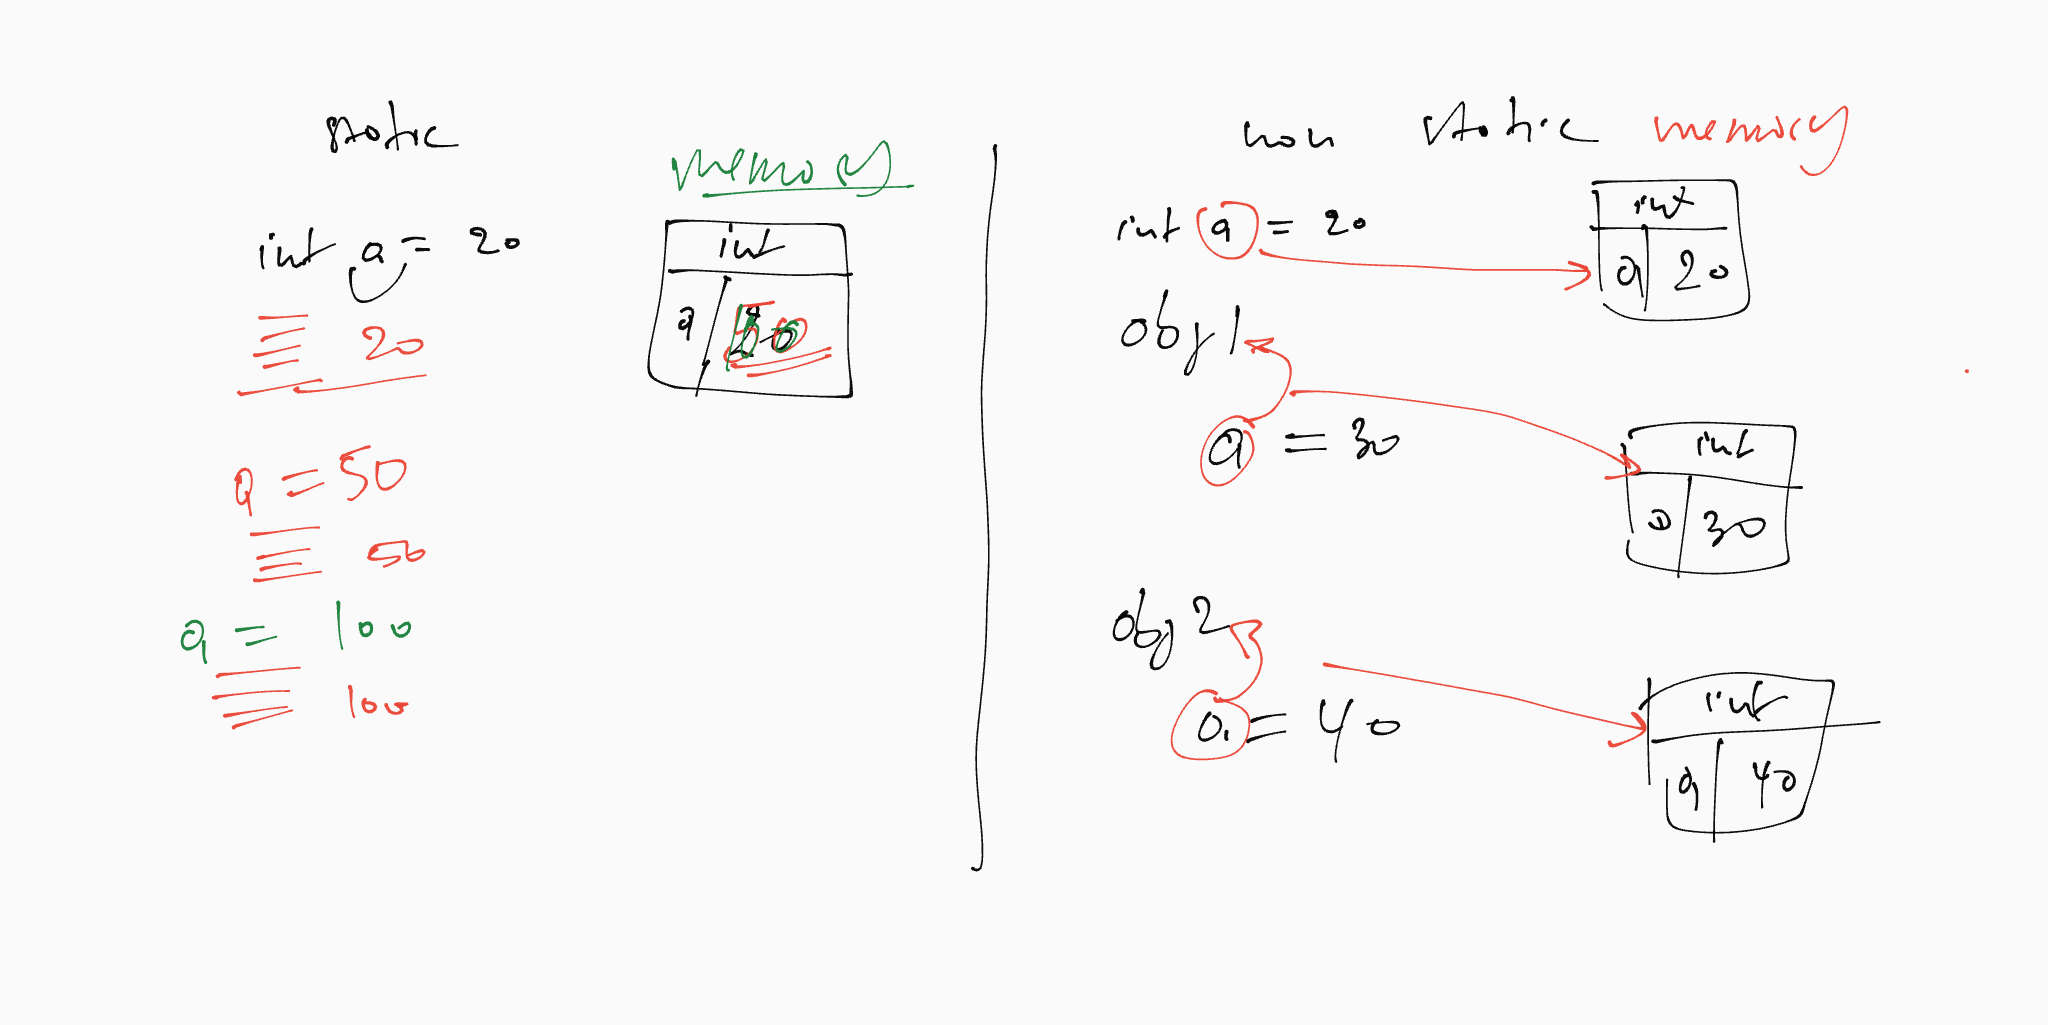 static
memory
int a = 20
int
a
20
a = 50
50
a = 100
100
non static memory
int a = 20
int
a 20
obj 1
a = 30
int
a 30
obj 2
a = 40
int
a 40